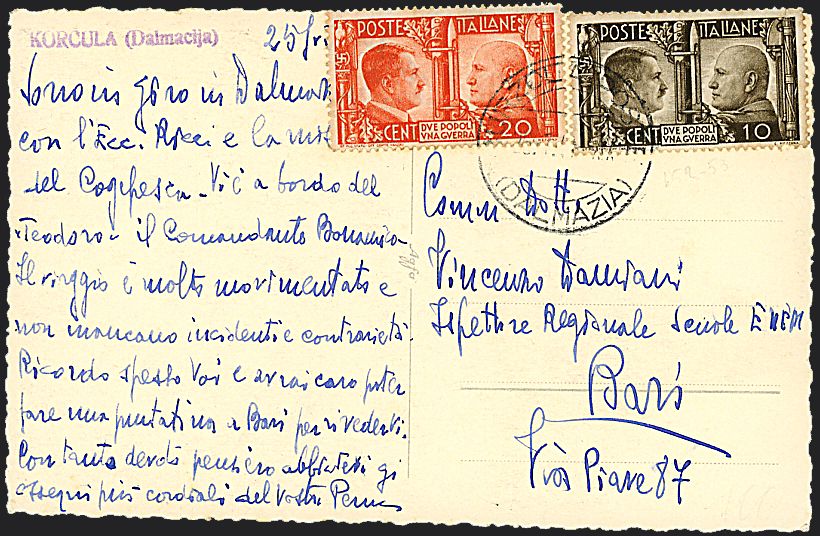 KORČULA (Dalmacija)
25
Sono in giro in Dalmat
con l'Ecc. Ricci e la mis
del Vi è a bordo del
"Teodoro" il Comandante
Il viaggio è molto movimentato e
non mancano incidenti e contrarietà.
Ricordo spesso Voi e avrei caro poter
fare una puntatina a Bari per rivedervi.
Con tanto devoto pensiero abbiatevi gi
ossequi più cordiali del Vostro
POSTE ITALIANE
CENT DVE POPOLI VNA GVERRA 20
POSTE ITALIANE
CENT DVE POPOLI VNA GVERRA 10
(DALMAZIA)
Agfa
Comm. Dott.
Vincenzo Damiani
Ispettore Regionale Scuole ENEM
Bari
Via Piave 87